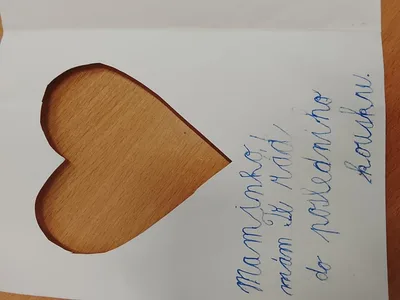 Maminko,
mám Tě rád
do posledního
kousku.